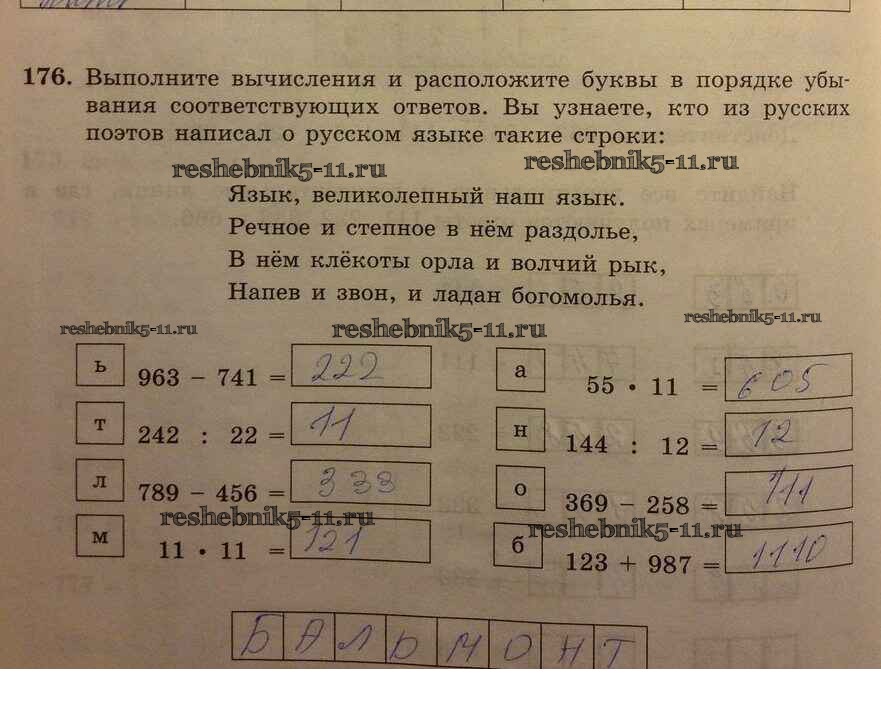 176. Выполните вычисления и расположите буквы в порядке убы-
вания соответствующих ответов. Вы узнаете, кто из русских
поэтов написал о русском языке такие строки:
reshebnik5-11.ru reshebnik5-11.ru
Язык, великолепный наш язык.
Речное и степное в нём раздолье,
В нём клёкоты орла и волчий рык,
Напев и звон, и ладан богомолья.
reshebnik5-11.ru reshebnik5-11.ru reshebnik5-11.ru
ь 963 − 741 = 222 а 55 • 11 = 605
т 242 : 22 = 11 н 144 : 12 = 12
л 789 − 456 = 333 о 369 − 258 = 111
reshebnik5-11.ru reshebnik5-11.ru
м 11 • 11 = 121 б 123 + 987 = 1110
БАЛЬМОНТ